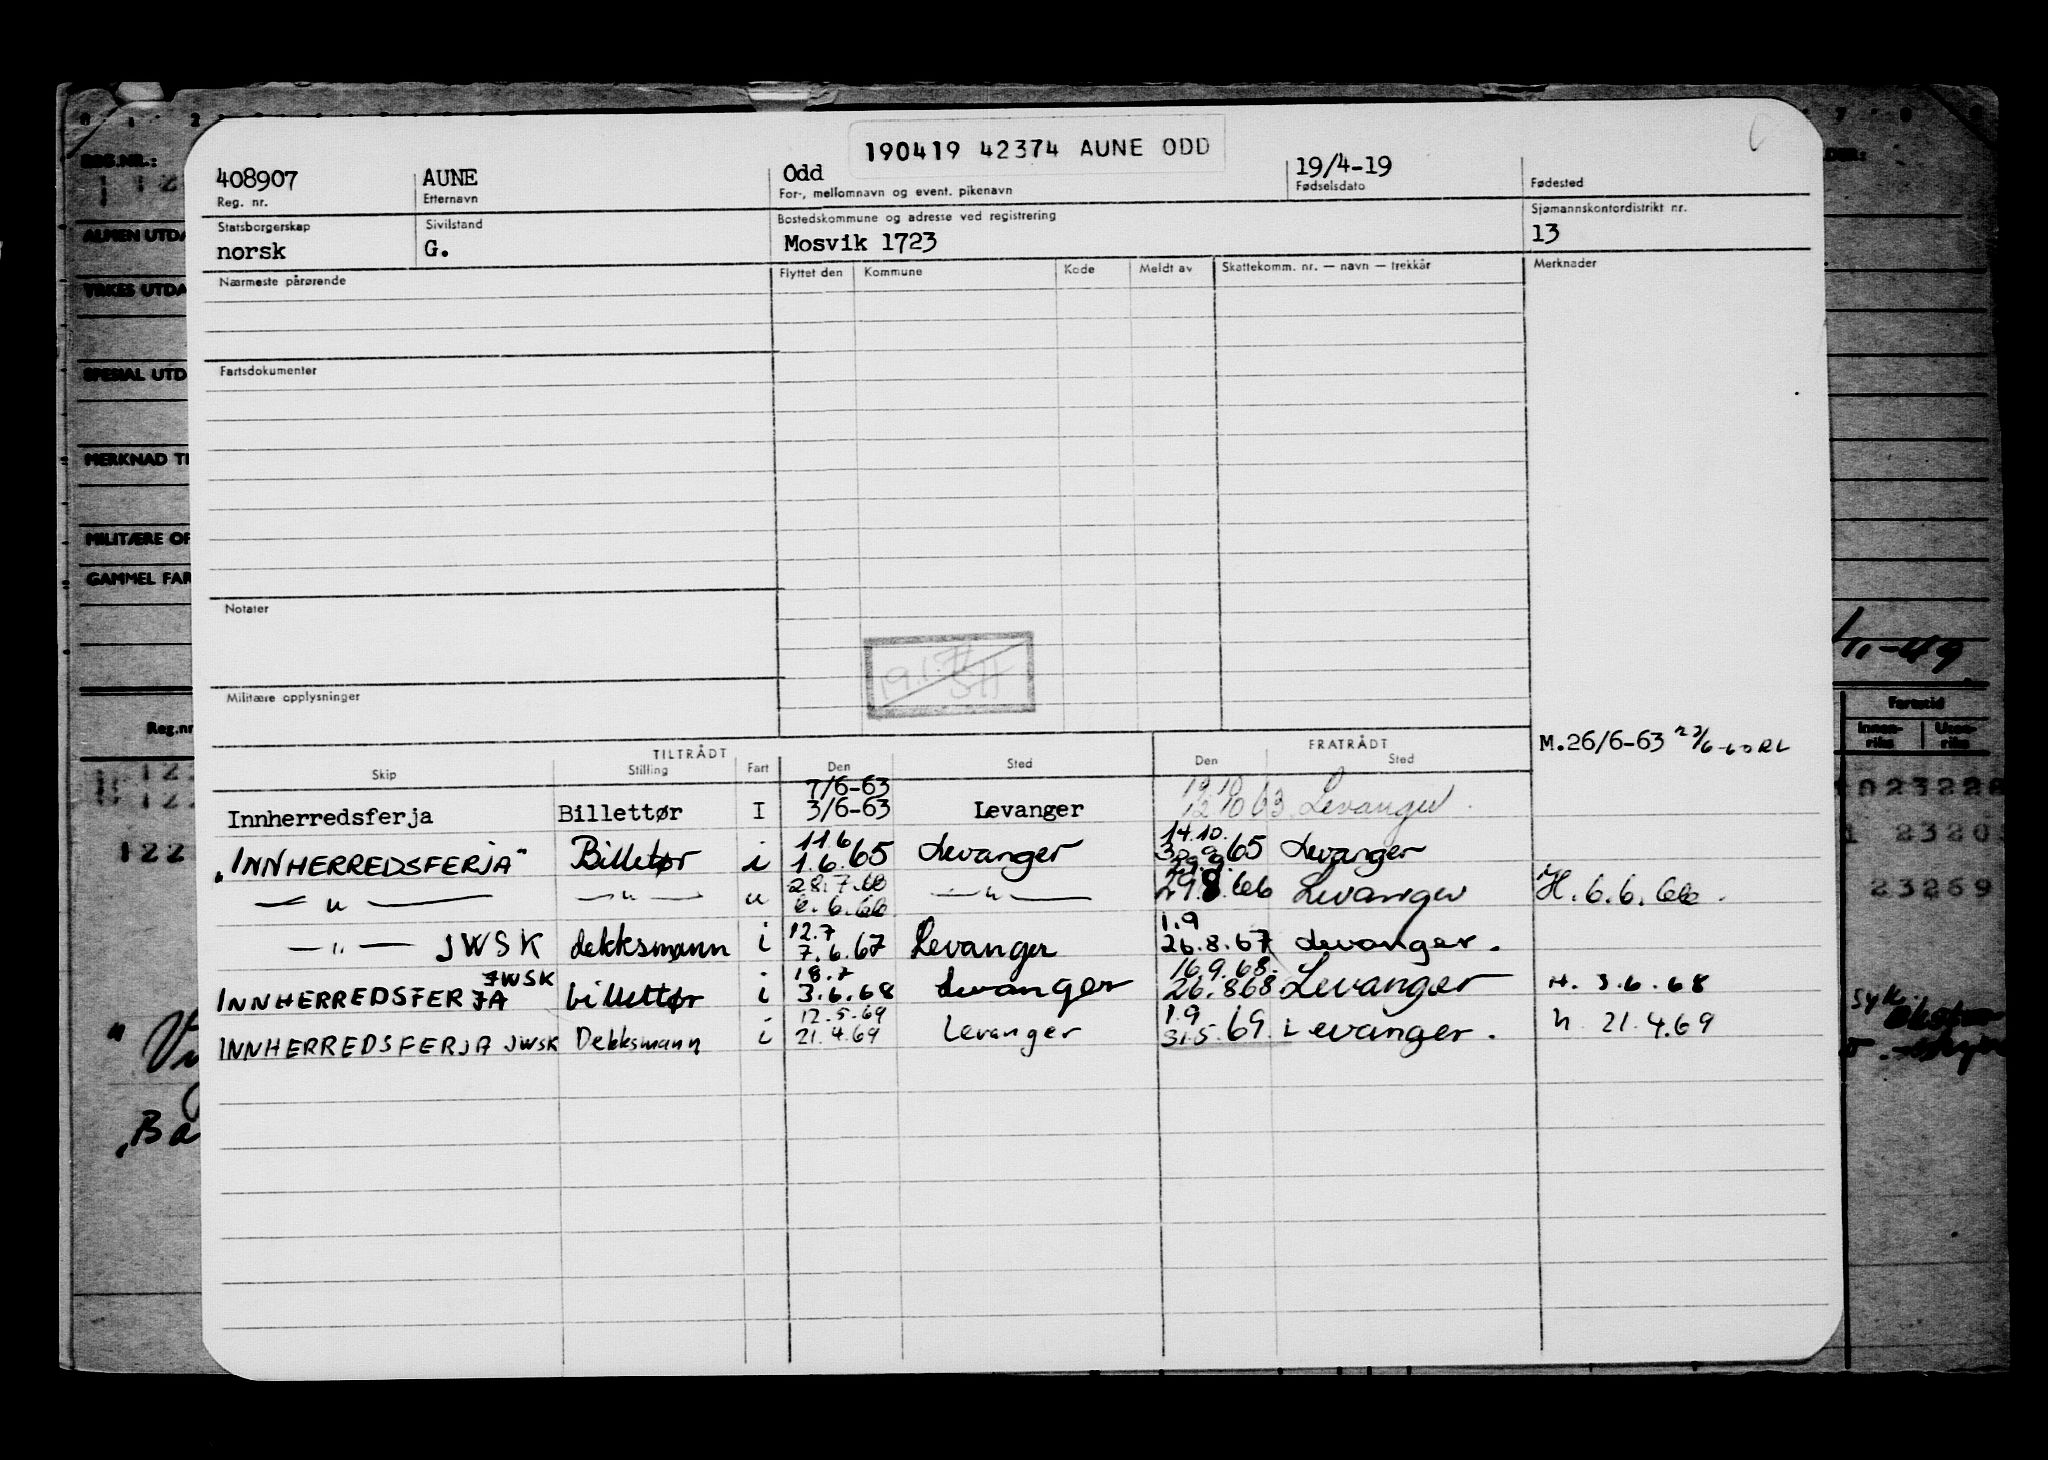 190419 42374 AUNE ODD
408907 AUNE Odd 19/4-19
Reg. nr. Etternavn For-, mellomnavn og event. pikenavn Fødselsdato Fødested
Statsborgerskap Sivilstand Bostedskommune og adresse ved registrering Sjømannskontordistrikt nr.
norsk G. Mosvik 1723 13
Nærmeste pårørende Flyttet den Kommune Kode Meldt av Skattekomm. nr. — navn — trekkår Merknader
Fartsdokumenter
Notater
Militære opplysninger
M.26/6-63
TILTRÅDT FRATRÅDT
Skip Stilling Fart Den Sted Den Sted
7/6-63
Innherredsferja Billettør I 3/6-63 Levanger 12/10 63 Levanger
11.6 14.10.
"INNHERREDSFERJA" Billetør i 1.6.65 Levanger 30.9.65 Levanger
28.7.66
— " — — " — " 6.6.66 — " — 29.8.66 Levanger H. 6.6.66.
12.7 1.9
— " — JWSK dekksmann i 7.6.67 Levanger 26.8.67 Levanger.
JWSK 18.7 16.9.68.
INNHERREDSFERJA billettør i 3.6.68 Levanger 26.868 Levanger H. 3.6.68
12.5.69 1.9
INNHERREDSFERJA JWSK Dekksmann i 21.4.69 Levanger 31.5.69. Levanger. h. 21.4.69
REG.NR.:
ALMEN UTDA
YRKES UTDA
SPESIAL UTD
MERKNAD TI
MILITÆRE OP
GAMMEL FAR
Reg.nr
122
Ba
Fartstid
Innen-
riks
Uten-
riks
1023228
23269
syk.